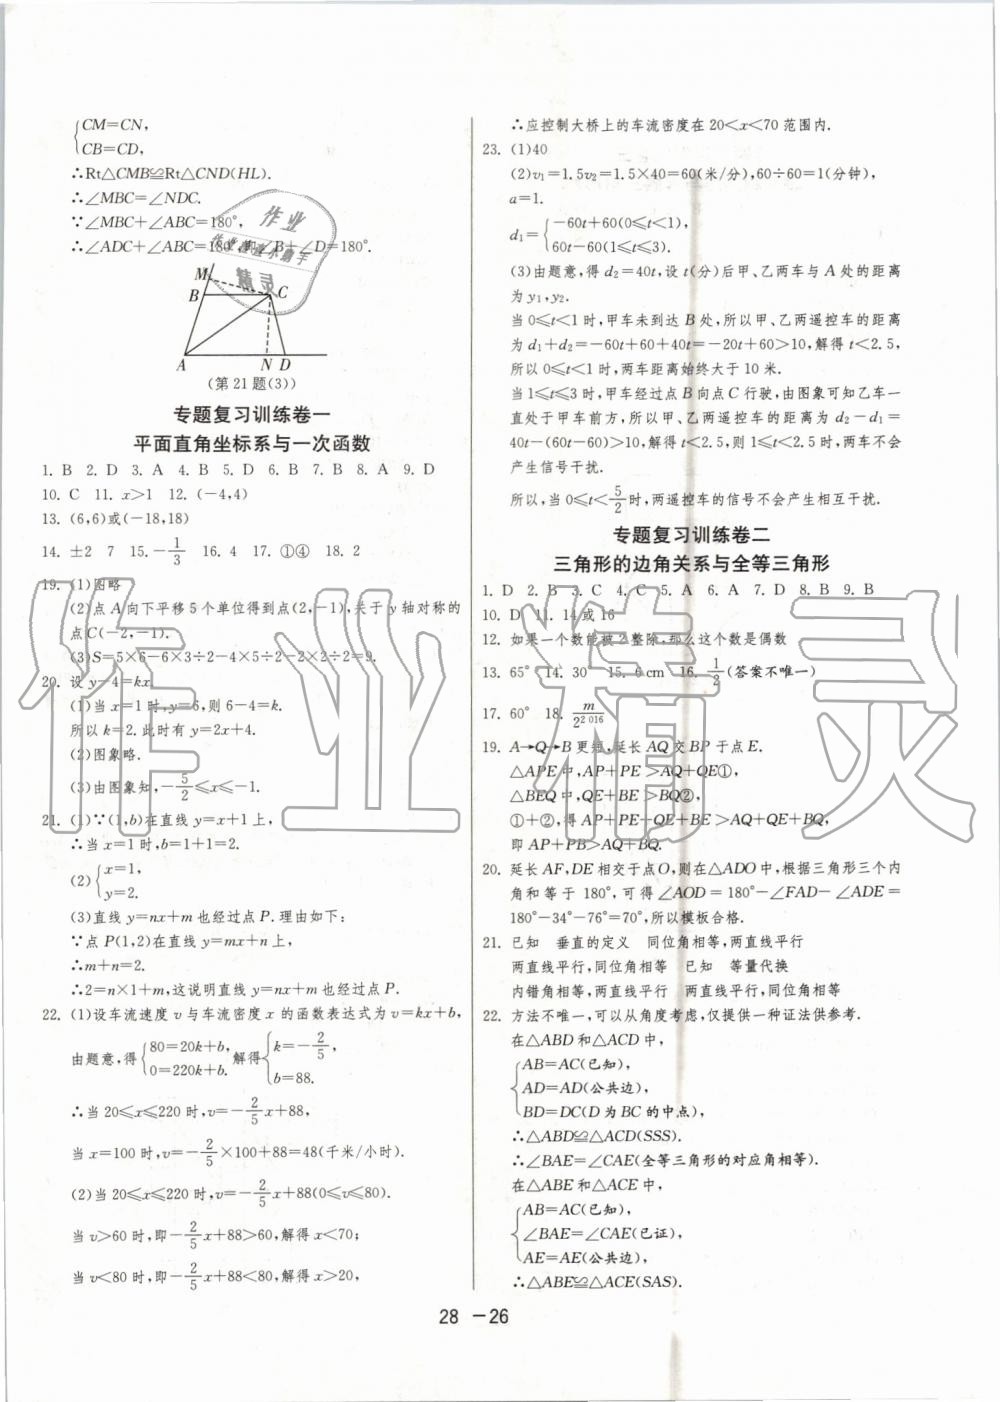 CM=CN,
CB=CD,
∴Rt△CMB≌Rt△CND(HL).
∴∠MBC=∠NDC.
∵∠MBC+∠ABC=180°,
∴∠ADC+∠ABC=180°,即∠B+∠D=180°.
M
B
C
A
N
D
(第21题(3))
专题复习训练卷一
平面直角坐标系与一次函数
1. B 2. D 3. A 4. B 5. D 6. B 7. B 8. A 9. D
10. C 11. x>1 12. (-4,4)
13. (6,6)或(-18,18)
14. ±2 7 15. -1/3 16. 4 17. ①④ 18. 2
19. (1)图略
(2)点A向下平移5个单位得到点(2,-1),关于y轴对称的
点C(-2,-1).
(3)S=5×6-6×3÷2-4×5÷2-2×2÷2=9.
20. 设y-4=kx.
(1)当x=1时,y=6,则6-4=k.
所以k=2.此时有y=2x+4.
(2)图象略.
(3)由图象知,-5/2≤x≤-1.
21. (1)∵(1,b)在直线y=x+1上,
∴当x=1时,b=1+1=2.
(2){x=1,
y=2.
(3)直线y=nx+m也经过点P.理由如下:
∵点P(1,2)在直线y=mx+n上,
∴m+n=2.
∴2=n×1+m,这说明直线y=nx+m也经过点P.
22. (1)设车流速度v与车流密度x的函数表达式为v=kx+b,
由题意,得{80=20k+b, 0=220k+b. 解得{k=-2/5, b=88.
∴当20≤x≤220时,v=-2/5x+88,
当x=100时,v=-2/5×100+88=48(千米/小时).
(2)当20≤x≤220时,v=-2/5x+88(0≤v≤80).
当v>60时,即-2/5x+88>60,解得x<70;
当v<80时,即-2/5x+88<80,解得x>20,
∴应控制大桥上的车流密度在20<x<70范围内.
23. (1)40
(2)v₁=1.5v₂=1.5×40=60(米/分),60÷60=1(分钟),
a=1.
d₁={-60t+60(0≤t<1),
60t-60(1≤t≤3).
(3)由题意,得d₂=40t,设t(分)后甲、乙两车与A处的距离
为y₁,y₂.
当0≤t<1时,甲车未到达B处,所以甲、乙两遥控车的距离
为d₁+d₂=-60t+60+40t=-20t+60>10,解得t<2.5,
所以0≤t<1时,两车距离始终大于10米.
当1≤t≤3时,甲车经过点B向点C行驶,由图象可知乙车一
直处于甲车前方,所以甲、乙两遥控车的距离为d₂-d₁=
40t-(60t-60)>10,解得t<2.5,则1≤t<2.5时,两车不会
产生信号干扰.
所以,当0≤t<5/2时,两遥控车的信号不会产生相互干扰.
专题复习训练卷二
三角形的边角关系与全等三角形
1. D 2. B 3. C 4. C 5. A 6. A 7. D 8. B 9. B
10. D 11. 14或16
12. 如果一个数能被2整除,那么这个数是偶数
13. 65° 14. 30 15. 6 cm 16. 1/2(答案不唯一)
17. 60° 18. m/2^2 016
19. A→Q→B更短,延长AQ交BP于点E.
△APE中,AP+PE>AQ+QE①,
△BEQ中,QE+BE>BQ②,
①+②,得AP+PE+QE+BE>AQ+QE+BQ,
即AP+PB>AQ+BQ.
20. 延长AF,DE相交于点O,则在△ADO中,根据三角形三个内
角和等于180°,可得∠AOD=180°-∠FAD-∠ADE=
180°-34°-76°=70°,所以模板合格.
21. 已知 垂直的定义 同位角相等,两直线平行
两直线平行,同位角相等 已知 等量代换
内错角相等,两直线平行 两直线平行,同位角相等
22. 方法不唯一,可以从角度考虑,仅提供一种证法供参考.
在△ABD和△ACD中,
AB=AC(已知),
AD=AD(公共边),
BD=DC(D为BC的中点),
∴△ABD≌△ACD(SSS).
∴∠BAE=∠CAE(全等三角形的对应角相等).
在△ABE和△ACE中,
AB=AC(已知),
∠BAE=∠CAE(已证),
AE=AE(公共边),
∴△ABE≌△ACE(SAS).
28 -26
作业
精灵
作业精灵